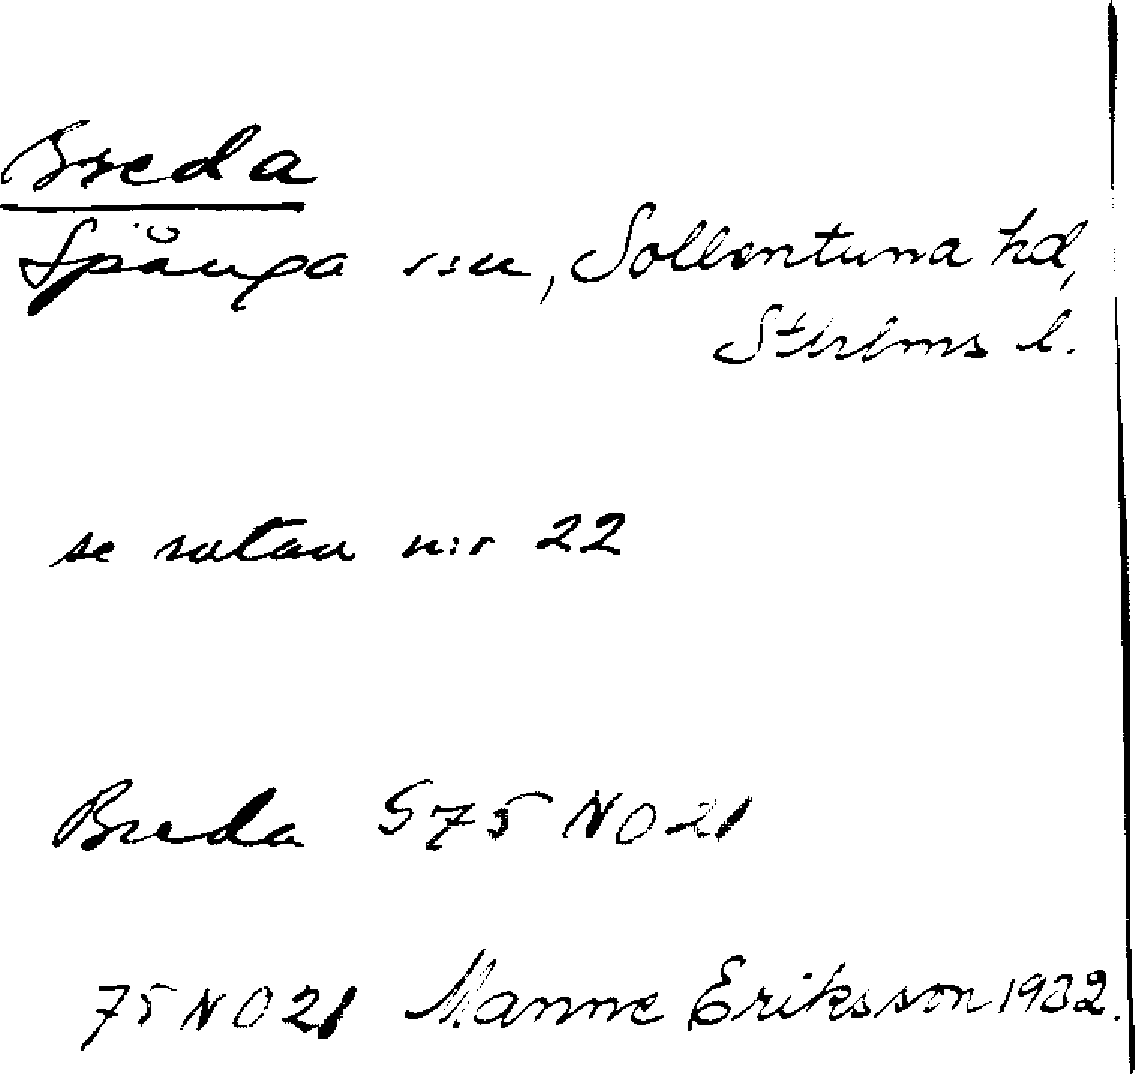 Breda
Spånga sn, Sollentuna hd,
Sthlms l.
se rutan n:r 22
Breda S 75 NO 21
75 NO 21 Manne Eriksson 1932.